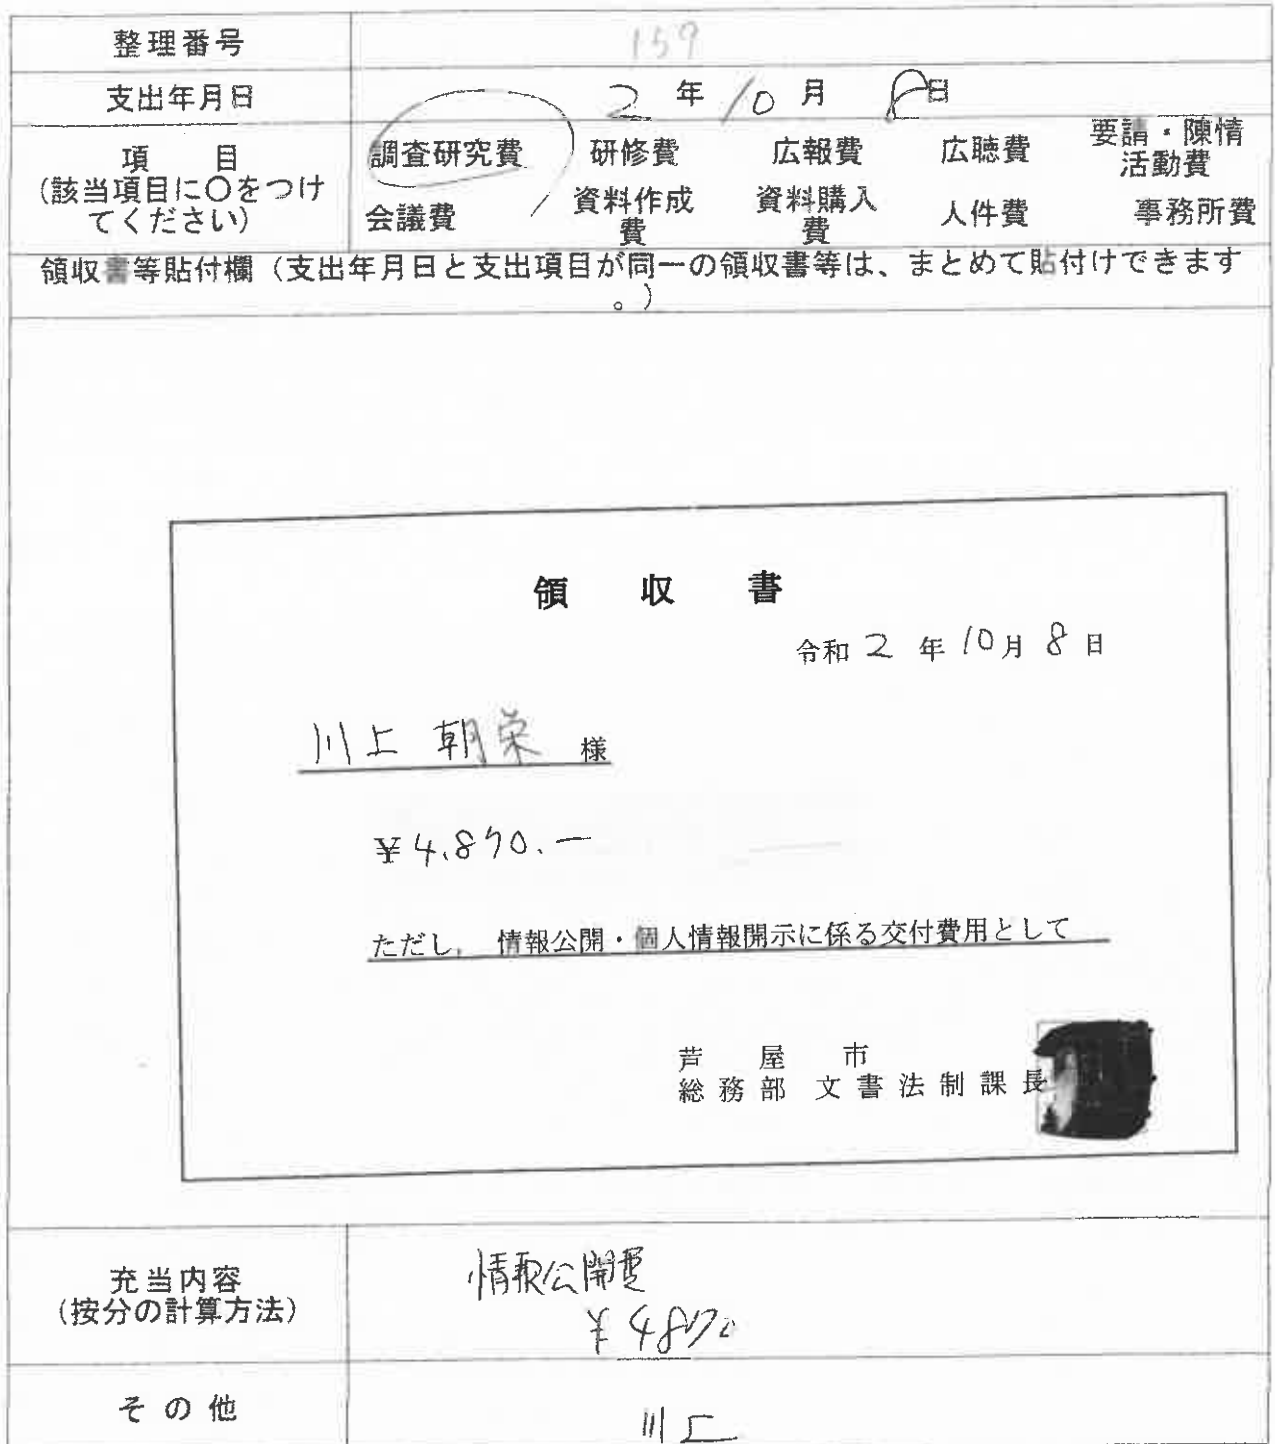 整理番号 159
支出年月日 2 年 10 月 8日
項 目
(該当項目に○をつけ
てください)
調査研究費 研修費 広報費 広聴費 要請・陳情
活動費
会議費 資料作成
費 資料購入
費 人件費 事務所費
領収書等貼付欄(支出年月日と支出項目が同一の領収書等は、まとめて貼付けできます
。)
領 収 書
令和 2 年 10月 8 日
川上 朝栄 様
¥4,870.ー
ただし, 情報公開・個人情報開示に係る交付費用として
芦 屋 市
総務部 文書法制課長
充当内容
(按分の計算方法)
情報公開費
¥4870
その他
川上